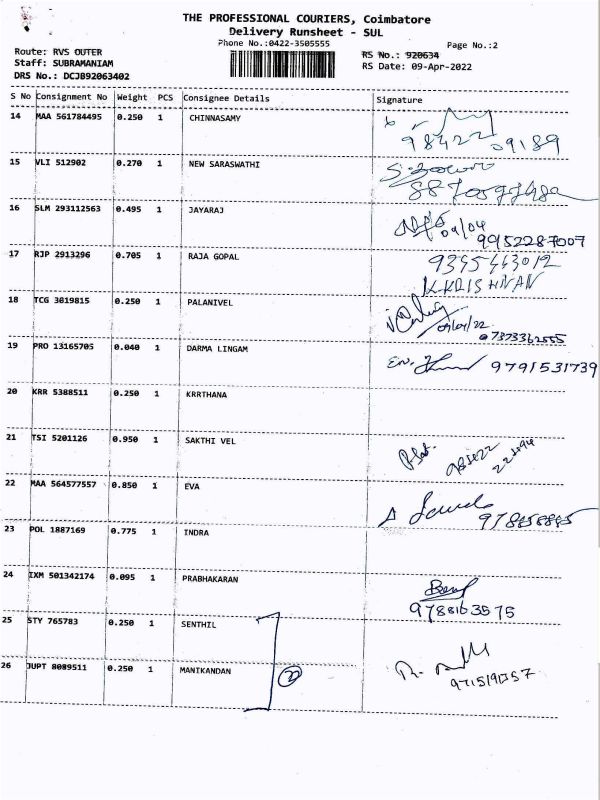 THE PROFESSIONAL COURIERS, Coimbatore
Delivery Runsheet - SUL
Phone No.:0422-3505555
Page No.:2
Route: RVS OUTER
RS No.: 920634
Staff: SUBRAMANIAM
RS Date: 09-Apr-2022
DRS No.: DCJB92063402
S No Consignment No Weight PCS Consignee Details Signature
14 MAA 561784495 0.250 1 CHINNASAMY
98422 09189
15 VLI 512902 0.270 1 NEW SARASWATHI
16 SLM 293112563 0.495 1 JAYARAJ
09/04
9952287007
17 RJP 2913296 0.705 1 RAJA GOPAL 9345443012
K.KRISHNAN
18 TCG 3019815 0.250 1 PALANIVEL
09/04/22
7373362555
19 PRO 13165705 0.040 1 DARMA LINGAM 9791531739
20 KRR 5388511 0.250 1 KRRTHANA
21 TSI 5201126 0.950 1 SAKTHI VEL
22 MAA 564577557 0.850 1 EVA
23 POL 1887169 0.775 1 INDRA
24 IXM 501342174 0.095 1 PRABHAKARAN
9788163575
25 STY 765783 0.250 1 SENTHIL
26 JUPT 8089511 0.250 1 MANIKANDAN